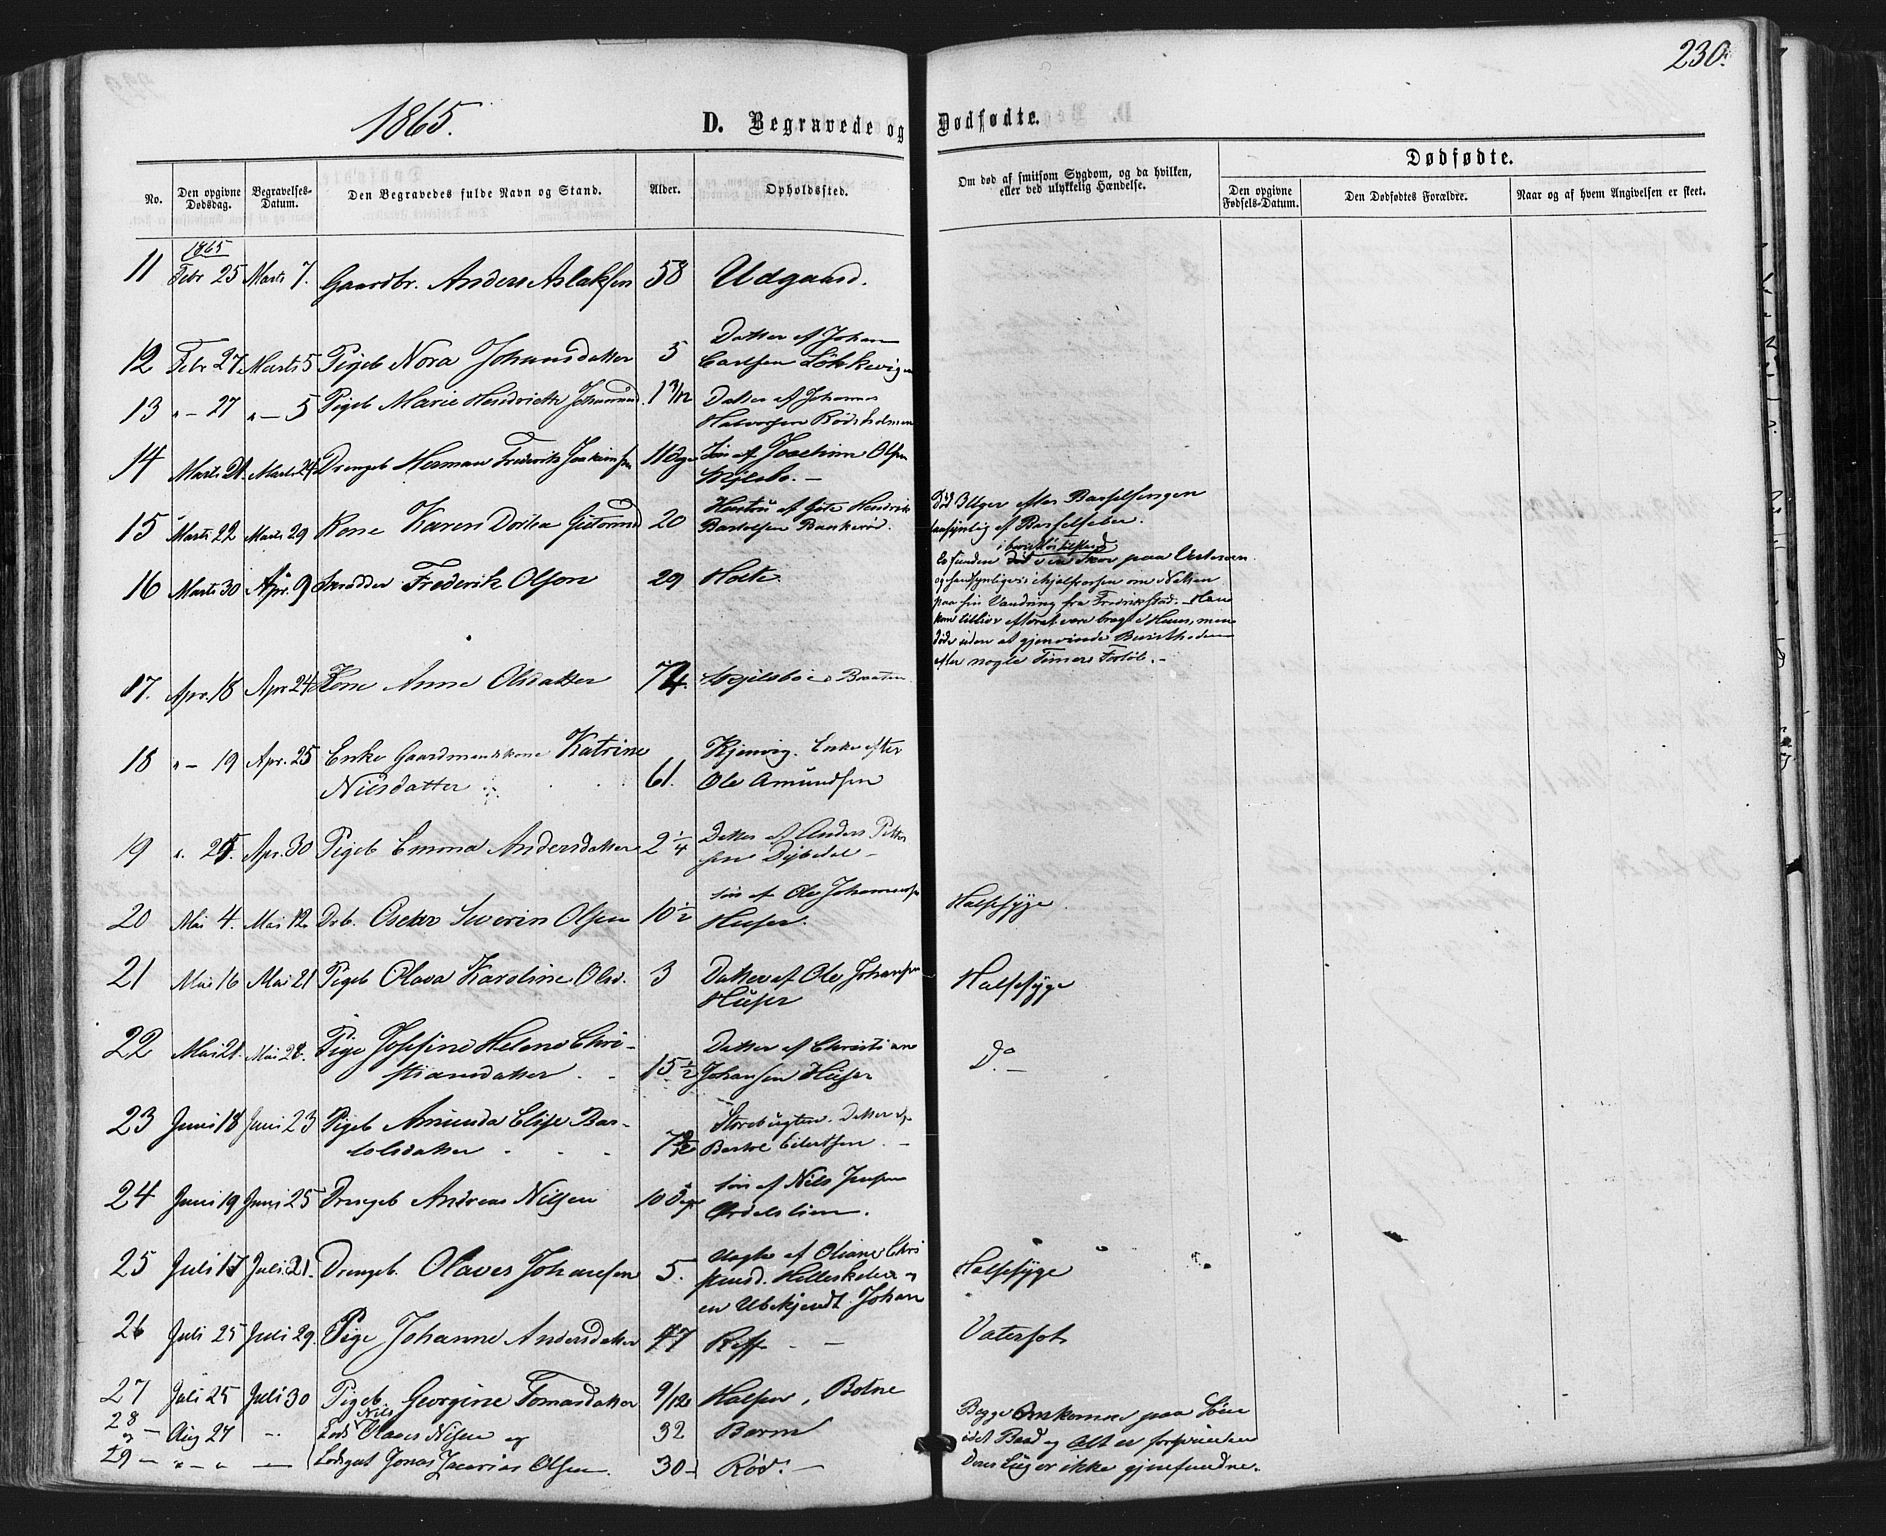 230.
1865.
D. Begravede og Dødfødte.
No.
Den opgivne Dødsdag.
Begravelses-Datum.
Den Begravedes fulde Navn og Stand.
Alder.
Opholdssted.
Om død af smitsom Sygdom, og da hvilken, eller ved ulykkelig Hændelse.
Dødfødte.
Den opgivne Fødsels-Datum.
Den Dødfødtes Forældre.
Naar og af hvem Angivelsen er skeet.
1865
11 Febr 25 Marts 7. Gaardbr. Anders Aslaksen 58 Udgaard.
12 Febr 27 Marts 5 Pigeb Nora Johansdatter 5 Datter af Johan
Carlsen Løkkevigen
13 " - 27 " - 5 Pigeb Marie Hendrikke Johannesd. 1 3/12 Datter af Johannes
Halvorsen Rødsholmen
14 Marts 21. Marts 24 Drengeb Herman Frederik Joakimsen 11 Dage Søn af Joachim Olsen
Vejlsbo. -
15 Marts 22 Marts 29 Kone Karen Dorthea 20 Hustru af Hendrik
Bartolsen Bankerød.
Død Uger efter Barselsengen
sandsynlig af Barselfeber.
16 Marts 30 Apr. 9 Skrædder Frederik Olson 29 Holte
i bevidstløs tilstand
funden ved en Skov paa Vesterøen
og sandsynligvis ihjelfrossen om Natten
paa sin Vandring fra Fredrikstad. - Han
kom tillive efterat være bragt i Huus, men
døde uden at gjenvinde Bevistheden
efter nogle Timers Forløb. -
17. Apr. 18 Apr 24 Kone Anne Olsdatter 74. Vejlsbo Braaten
18 " - 19 Apr. 25 Enke Gaardmandskone Katrine
Nilsdatter 61. Kjenvig. Enke efter
Ole Amundsen
19 " 25. Apr. 30 Pigeb Emma Andersdatter 2 1/4 Datter af Anders Petter
sen Dybedal -
20 Mai 4. Mai 12 Drb. Oscar Severin Olsen 10 1/2 Søn af Ole Johannesen
Huser. Halsesyge.
21 Mai 16 Mai 21 Pigeb Olava Karoline Olsd. 3 Datter af Ole Johansen
Huser Halsesyge
22 Mai 21. Mai 28. Pige Josefine Helene Chri-
stiansdatter 15 1/2 Datter af Christian
Johansen Huser Do -
23 Juni 18 Juni 23 Pigeb Amunda Elise Bar-
tolsdatter Storebugten. Datter af
Bartol Eilertsen. -
24 Juni 19 Juni 25 Drengeb Andreas Nilsen 10 Dage Søn af Nils Jensen
Ordalslien.
25 Juli 17 Juli 21. Drengeb. Olaves Johansen 5. Uægte af Oliane Chri
stensd. Helleskilen og
en Ubekjendt Johan Halsesyge
26 Juli 25 Juli 29. Pige Johanne Andersdatter 47 Reff - Vatersot
27 Juli 25 Juli 30 Pigeb Georgine Tomasdatter 9/12 Halsen, Botne
28 - Aug 27 - Lods Nils Olaves Nilsen og 32 Barm
og
29 - " - " - Lodsgut Jonas Zacarias Olsen. 30 - Rød. -
Begge Omkomne paa Søen
idet Baad og Alt er forsvunden
Deres Liig er ikke gjenfundne.